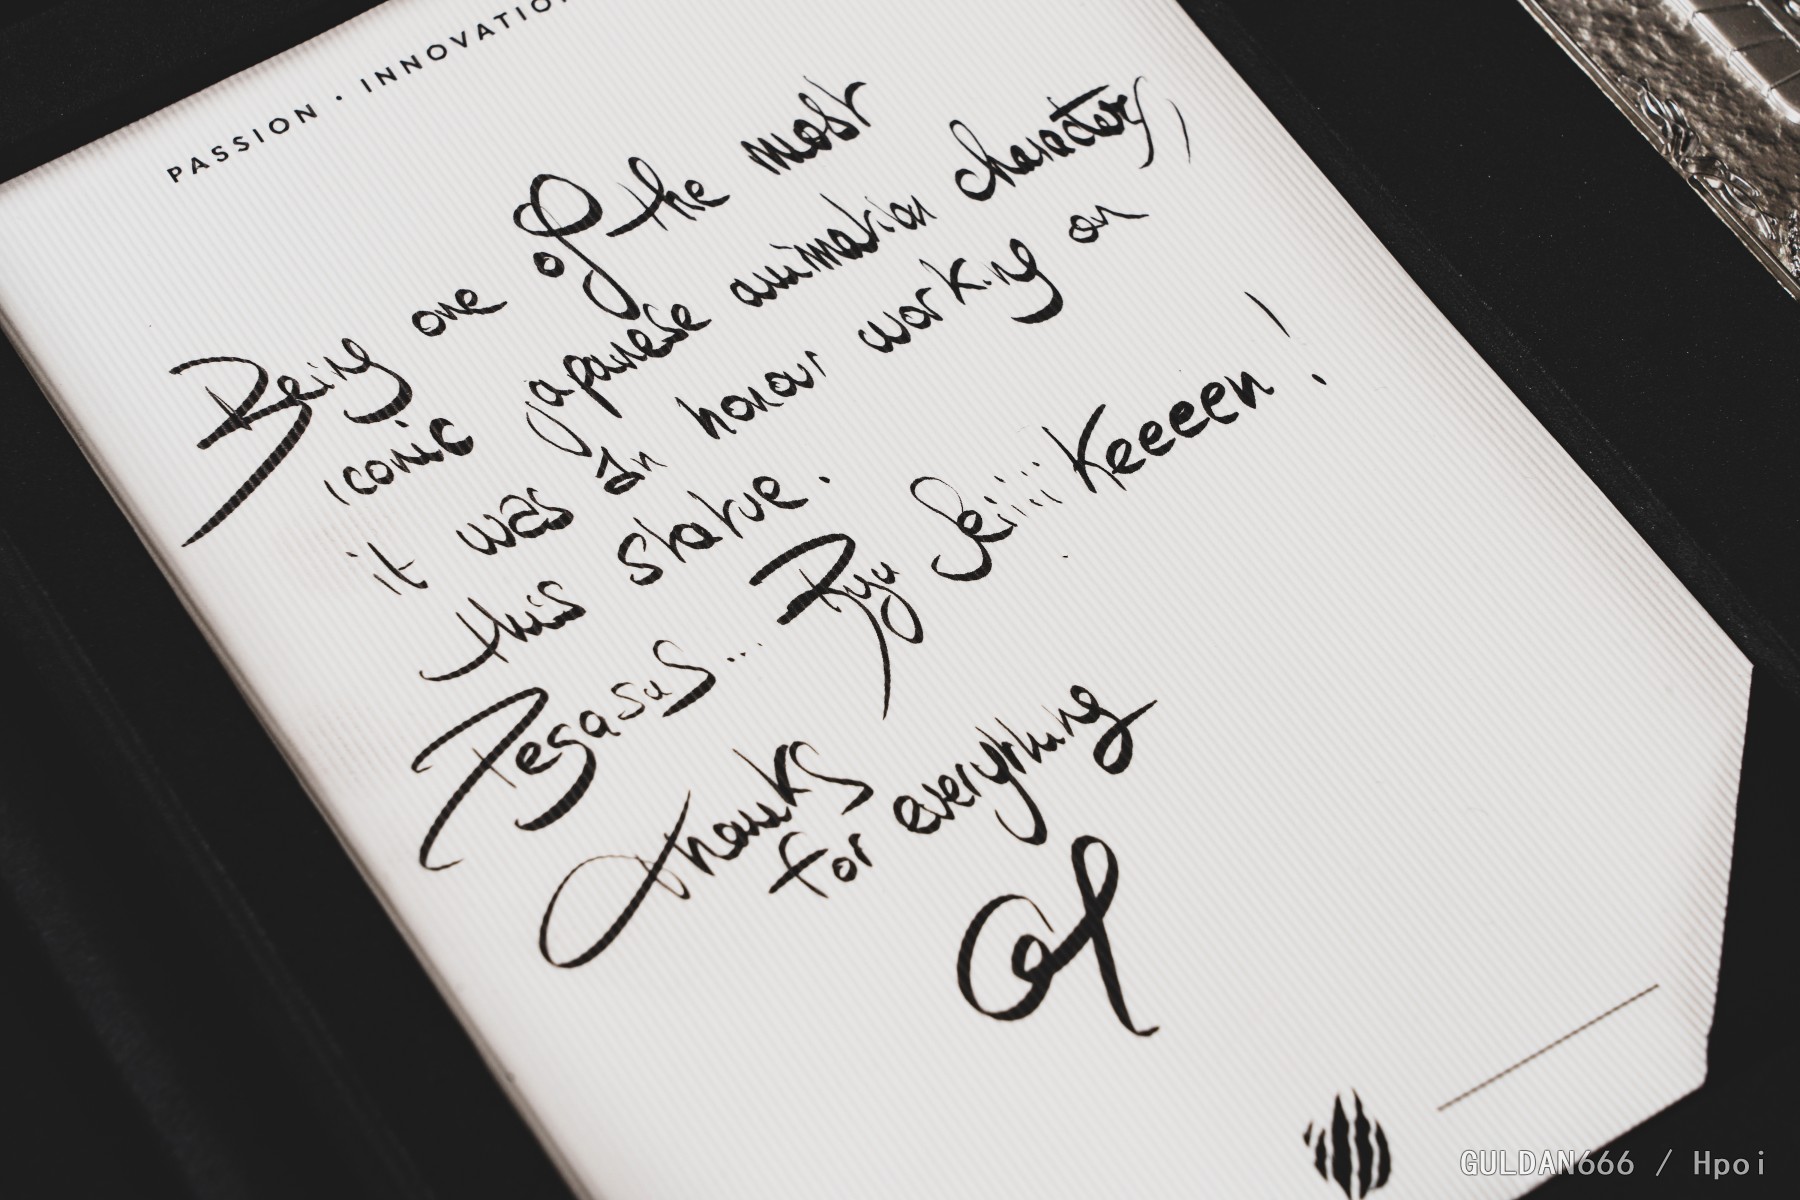 PASSION · INNOVATIO
Being one of the most
iconic japanese animation character,
it was an honour working on
this statue.
Pegasus... Ryu Seiiii Keeeen !
Thanks
for everything
GULDAN666 / Hpoi